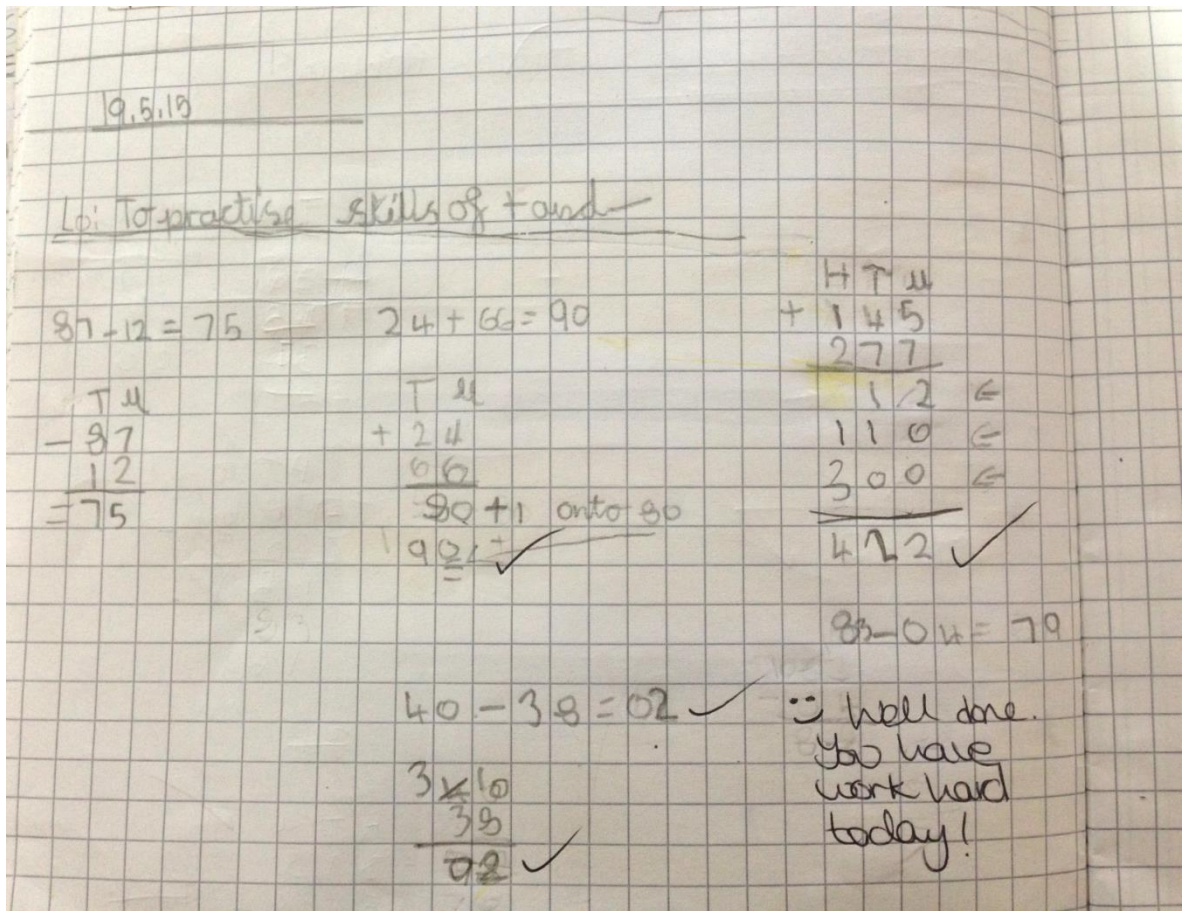 19.5.15
Lo: To practise skills of + and -
87-12=75
T U
- 87
12
= 75
24+66=90
T U
+ 24
66
80 +1 onto 80
90
H T U
+ 145
277
12 ←
110 ←
300 ←
422 ✓
83-04=79
40-38=02 ✓
3 4 10
38
02 ✓
Well done.
You have
work hard
today!